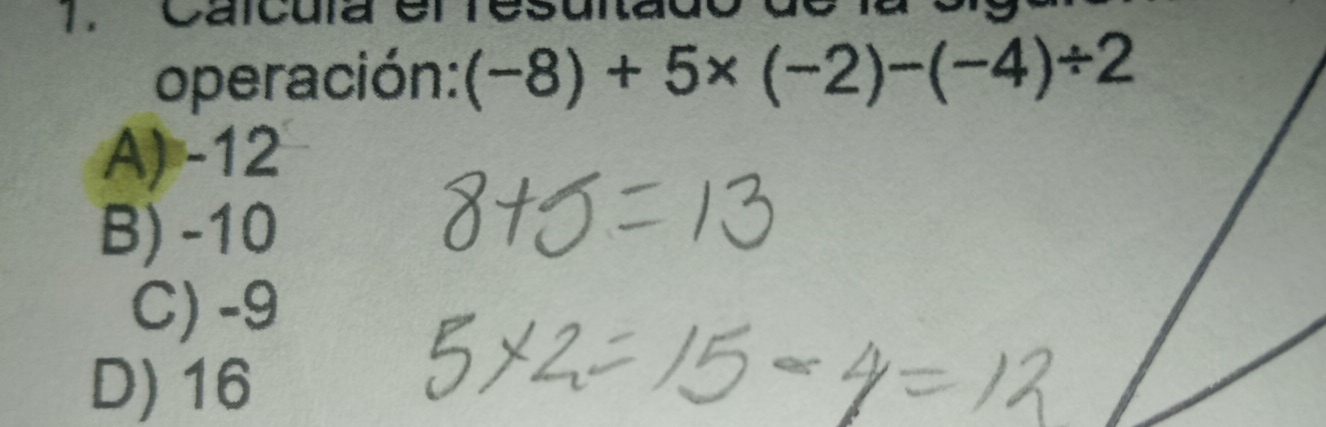 1. Calcula el resultado de la
operación:(−8) + 5× (−2)−(−4)÷2
A) -12
B) -10
C) -9
D) 16
8+5=13
5×2=15-4=12